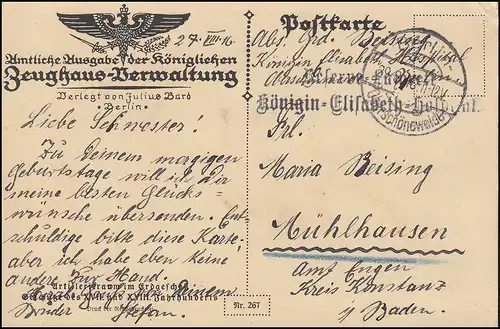 27. VIII. 16
Amtliche Ausgabe der Königlichen
Zeughaus-Verwaltung
Verlegt von Julius Bard
Berlin
Liebe Schwester!
Zu Deinem morgigen
Geburtstage will ich Dir
meine besten Glücks-
wünsche übersenden. Ent-
schuldige bitte diese Karte,
aber ich habe eben keine
andere zur Hand.
Artillerieraum im Erdgeschoß
Geschütze des XVII. und XVIII. Jahrhunderts
Herzl. Deinem
Bruder Stefan.
Druck der
Nr. 267
Postkarte
Abs. Grd. Beising
Königin Elisabeth Hospital
Reserve-Lazarett
Königin-Elisabeth-Hospital
Oberschöneweide
Frl.
Maria Beising
Mühlhausen
Amt Engen
Kreis Konstanz
Baden.